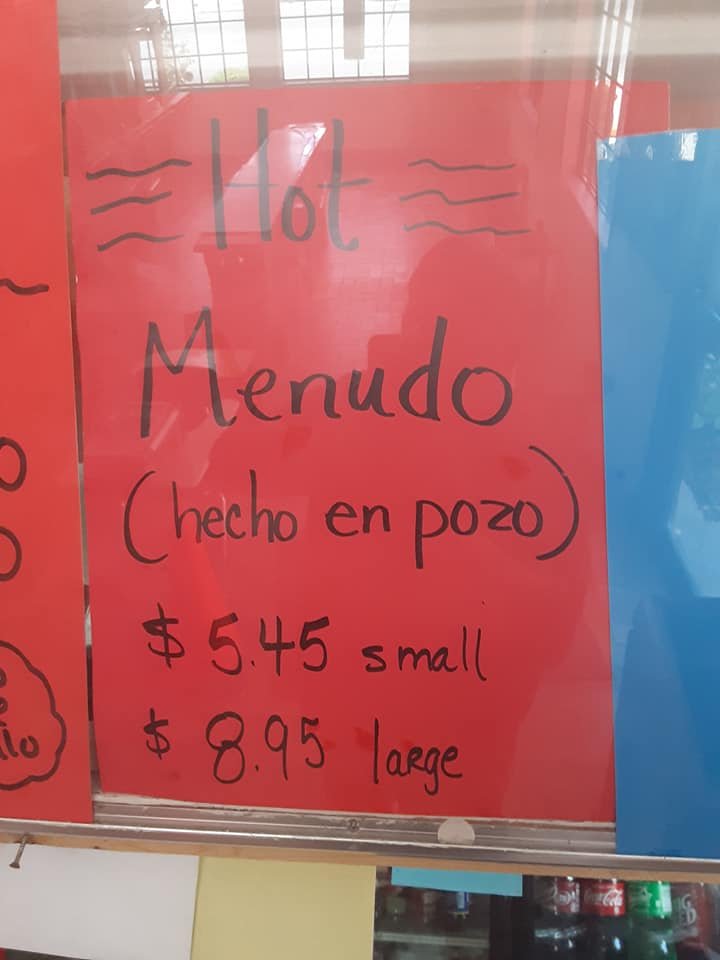 Hot
Menudo
(hecho en pozo)
$ 5.45 small
$ 8.95 large
Coca-Cola